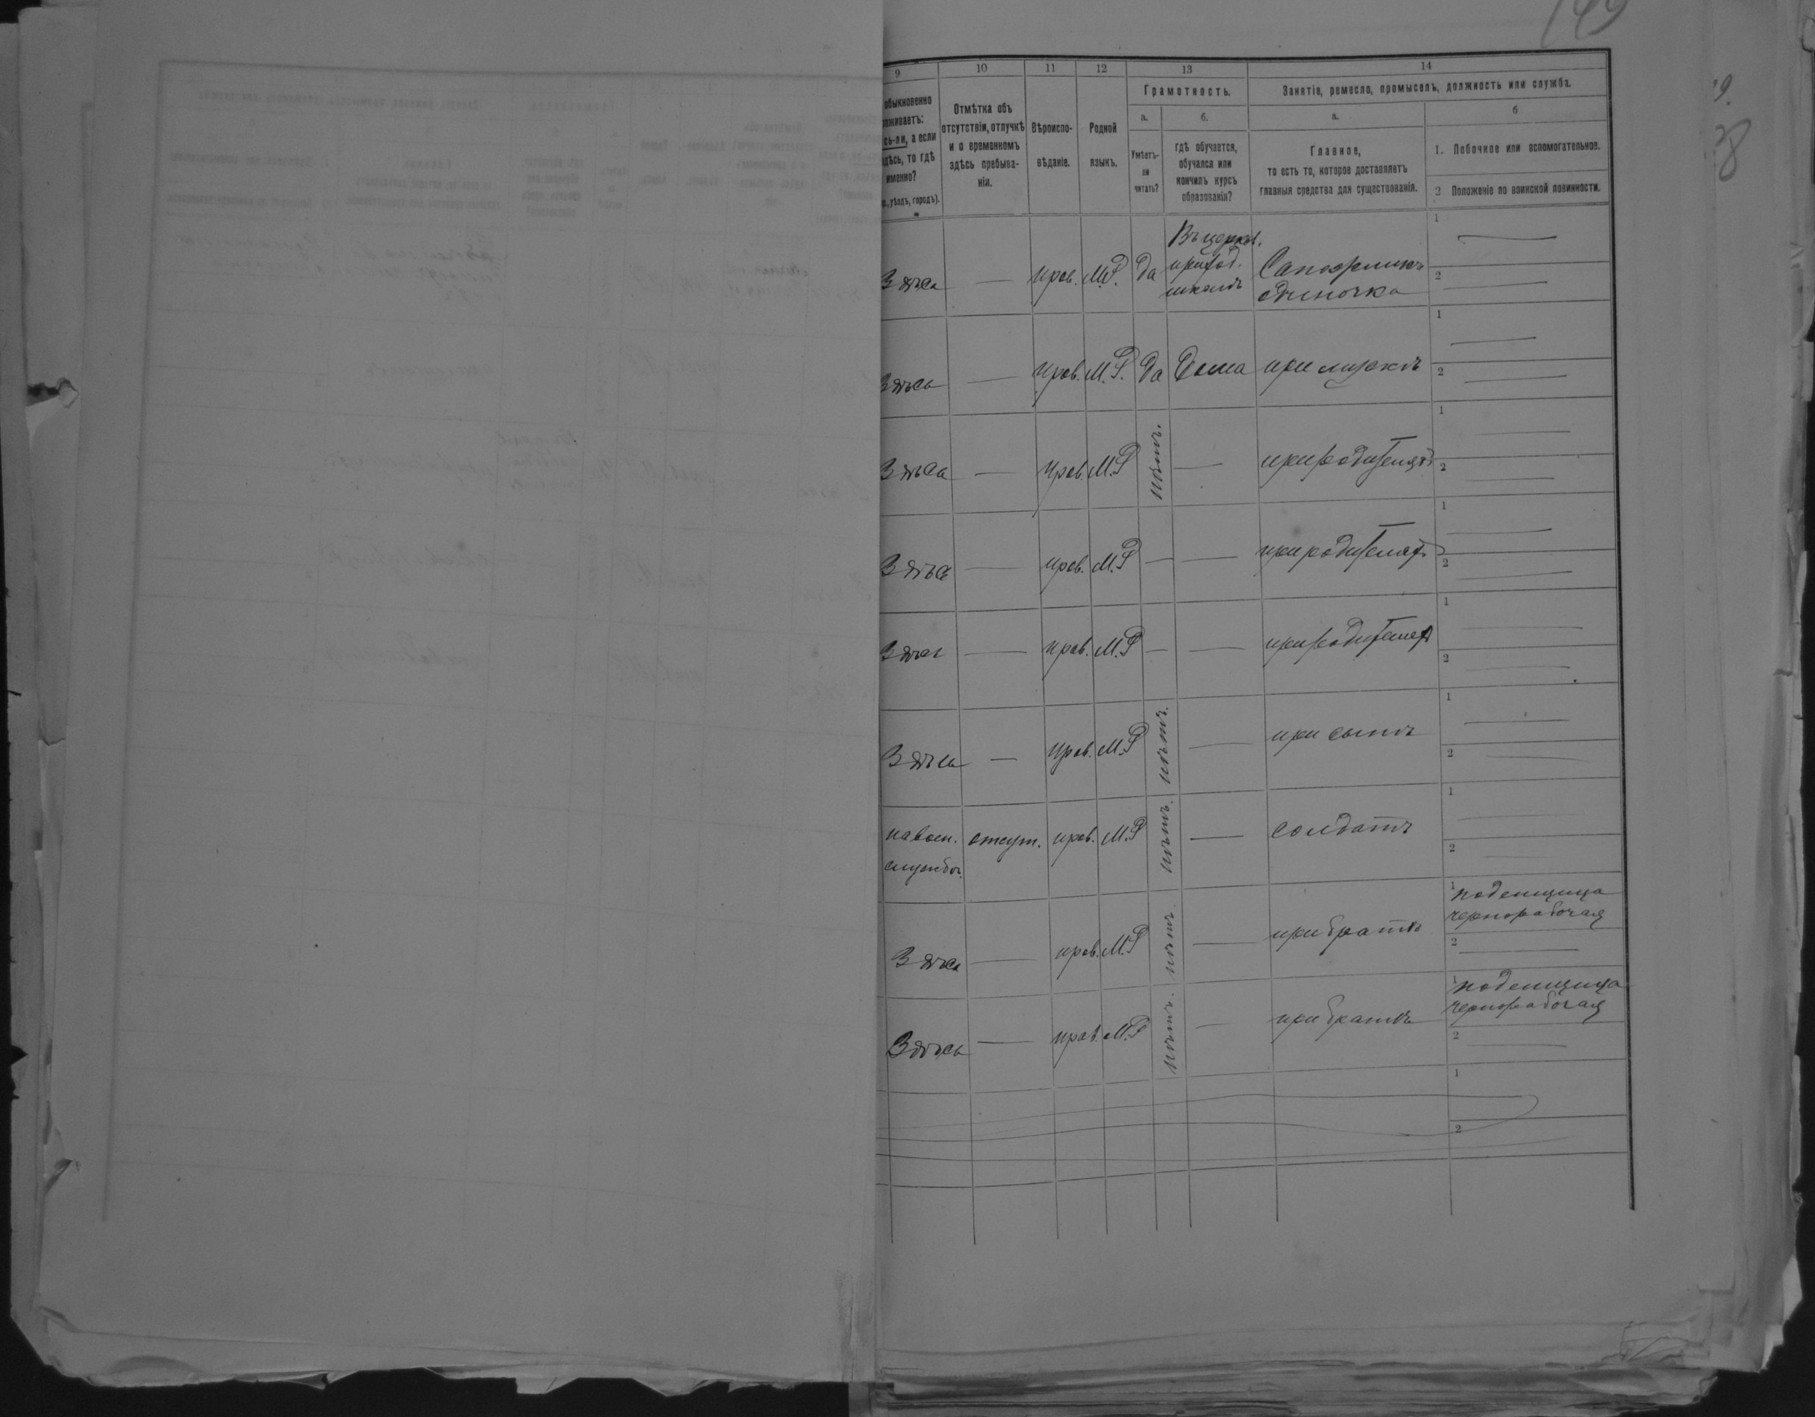 149
9 10 11 12 13 14
обыкновенно
живаетъ:
сь-ли, а если
здѣсь, то гдѣ
именно?
уѣздъ, городъ).
Отмѣтка объ
отсутствіи, отлучкѣ
и о временномъ
здѣсь пребыва-
ніи.
Вѣроиспо-
вѣданіе.
Родной
языкъ.
Грамотность.
а.
Умѣетъ-
ли
читать?
б.
гдѣ обучается,
обучался или
кончилъ курсъ
образованія?
Занятіе, ремесло, промыселъ, должность или служба.
а.
Главное,
то есть то, которое доставляетъ
главныя средства для существованія.
б
1. Побочное или вспомогательное.
2 Положеніе по воинской повинности.
Здѣсь — прав. М.Р. да Въ церков. приход. школѣ Сапожникъ одиночка 1 — 2 —
Здѣсь — прав. М.Р. да Дома при мужѣ 1 — 2 —
Здѣсь — прав. М.Р нѣтъ. — при родителяхъ 1 — 2 —
Здѣсь — прав. М.Р — — при родителяхъ 1 — 2 —
Здѣсь — прав. М.Р — — при родителях 1 — 2 —
Здѣсь — прав. М.Р нѣтъ. — при сынѣ 1 — 2 —
на воен. службѣ. отсут. прав. М.Р нѣтъ. — солдатъ 1 — 2 —
Здѣсь — прав. М.Р нѣтъ. — при братѣ 1 поденщица чернорабочая 2 —
Здѣсь — прав. М.Р нѣтъ. — при братѣ 1 поденщица чернорабочая 2 —
1
2